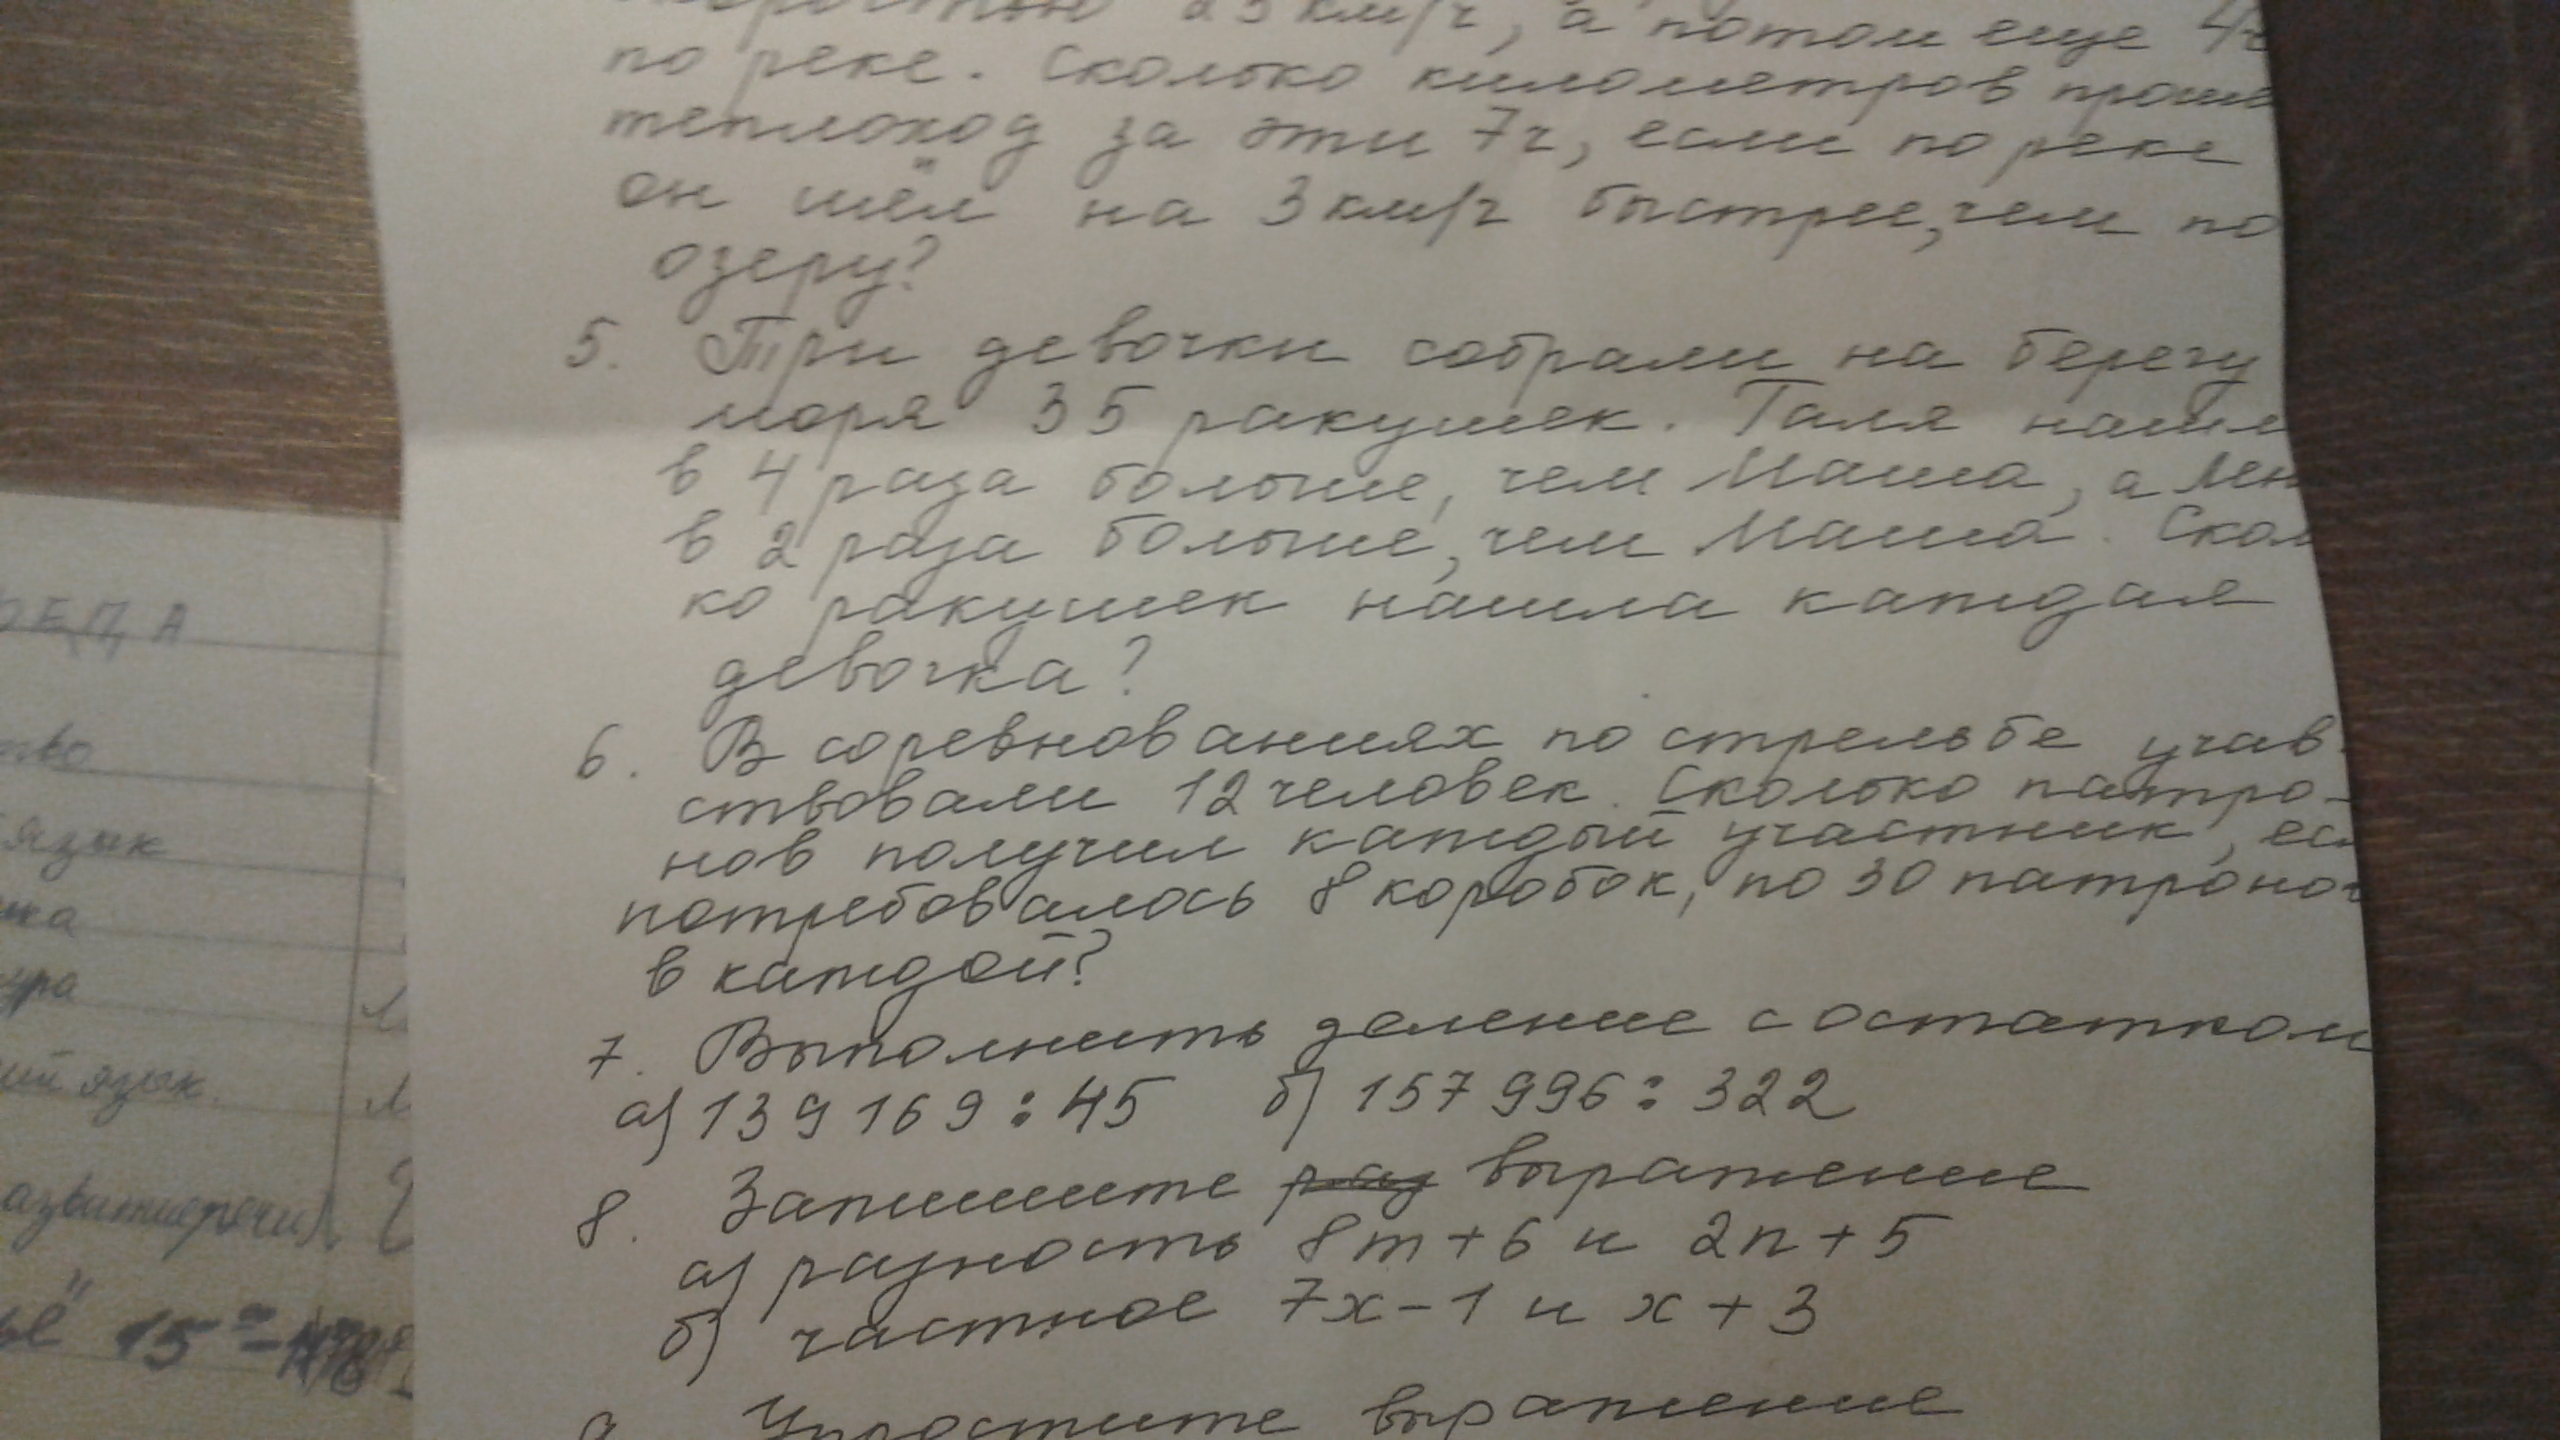 23 км/ч, а потом еще 4ч
по реке. Сколько километров прош
теплоход за эти 7ч, если по реке
он шёл на 3 км/ч быстрее, чем по
озеру?
5. Три девочки собрали на берегу
моря 35 ракушек. Галя нашл
в 4 раза больше, чем Маша, а Лен
в 2 раза больше, чем Маша. Скол
ко ракушек нашла каждая
девочка?
6. В соревнованиях по стрельбе учав-
ствовали 12 человек. Сколько патро-
нов получил каждый участник, есл
потребовалось 8 коробок, по 30 патронов
в каждой?
7. Выполнить деление с остатком
а) 139 169 : 45 б) 157 996 : 322
8. Запишите раз выражение
а) разность 8m + 6 и 2n + 5
б) частное 7x - 1 и x + 3
9 Упростите выражение
РЕДА
тво
язык
ика
ура
ий язык.
азвитие речи
15